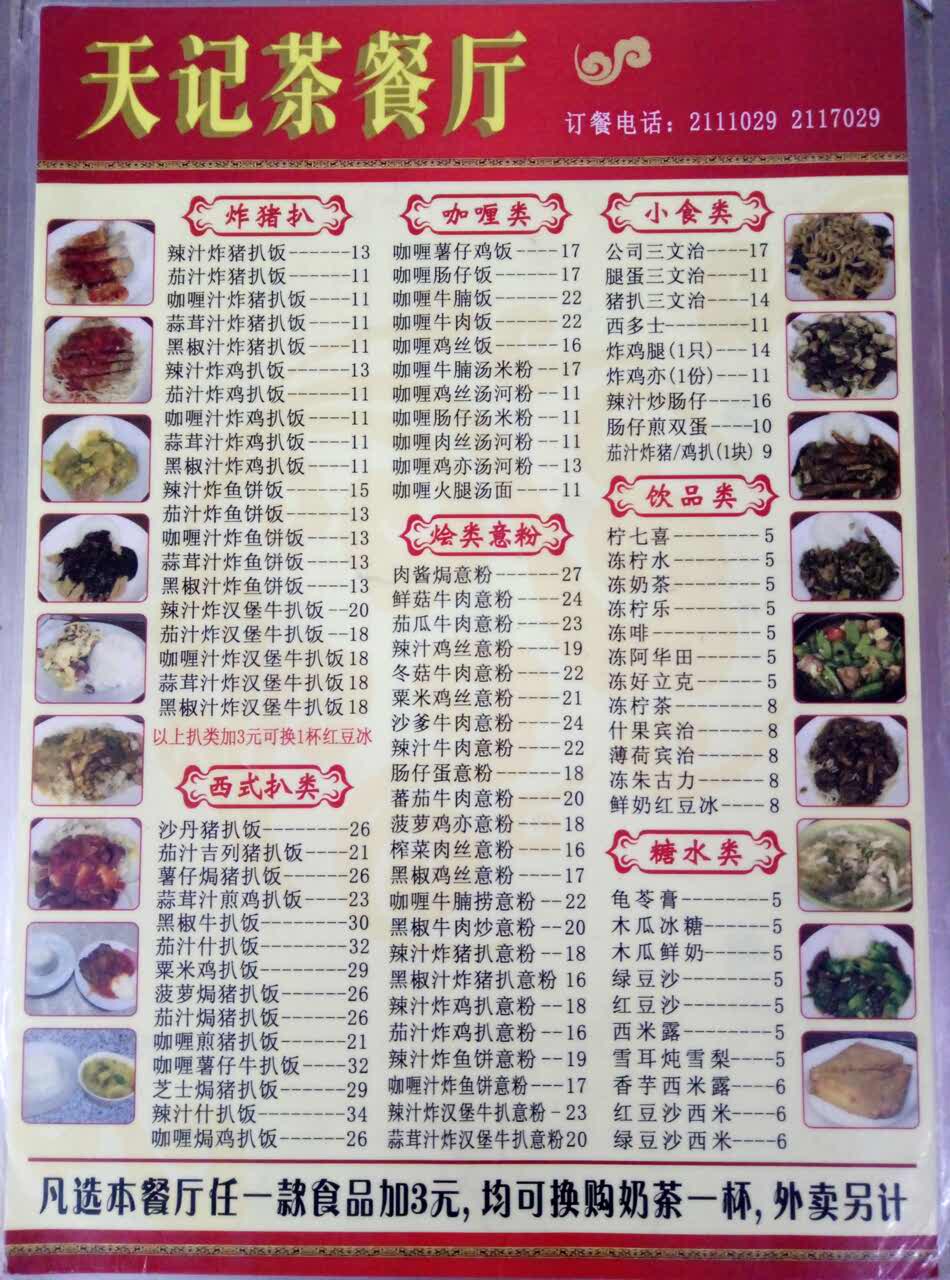 天记茶餐厅
订餐电话：2111029 2117029
炸猪扒
辣汁炸猪扒饭------13
茄汁炸猪扒饭-----11
咖喱汁炸猪扒饭----11
蒜茸汁炸猪扒饭----11
黑椒汁炸猪扒饭----11
辣汁炸鸡扒饭------13
茄汁炸鸡扒饭------11
咖喱汁炸鸡扒饭----11
蒜茸汁炸鸡扒饭----11
黑椒汁炸鸡扒饭----11
辣汁炸鱼饼饭------15
茄汁炸鱼饼饭------13
咖喱汁炸鱼饼饭----13
蒜茸汁炸鱼饼饭----13
黑椒汁炸鱼饼饭----13
辣汁炸汉堡牛扒饭--20
茄汁炸汉堡牛扒饭--18
咖喱汁炸汉堡牛扒饭18
蒜茸汁炸汉堡牛扒饭18
黑椒汁炸汉堡牛扒饭18
以上扒类加3元可换1杯红豆冰
西式扒类
沙丹猪扒饭--------26
茄汁吉列猪扒饭----21
薯仔焗猪扒饭------26
蒜茸汁煎鸡扒饭----23
黑椒牛扒饭--------30
茄汁什扒饭--------32
粟米鸡扒饭--------29
菠萝焗猪扒饭------26
茄汁焗猪扒饭------26
咖喱煎猪扒饭------21
咖喱薯仔牛扒饭----32
芝士焗猪扒饭------29
辣汁什扒饭--------34
咖喱焗鸡扒饭------26
咖喱类
咖喱薯仔鸡饭-----17
咖喱肠仔饭-------17
咖喱牛腩饭-------22
咖喱牛肉饭-------22
咖喱鸡丝饭-------16
咖喱牛腩汤米粉---17
咖喱鸡丝汤河粉---11
咖喱肠仔汤米粉---11
咖喱肉丝汤河粉---11
咖喱鸡亦汤河粉---13
咖喱火腿汤面-----11
烩类意粉
肉酱焗意粉-------27
鲜菇牛肉意粉-----24
茄瓜牛肉意粉-----23
辣汁鸡丝意粉-----19
冬菇牛肉意粉-----22
粟米鸡丝意粉-----21
沙爹牛肉意粉-----24
辣汁牛肉意粉-----22
肠仔蛋意粉-------18
蕃茄牛肉意粉-----20
菠萝鸡亦意粉-----18
榨菜肉丝意粉-----16
黑椒鸡丝意粉-----17
咖喱牛腩捞意粉---22
黑椒牛肉炒意粉---20
辣汁炸猪扒意粉---18
黑椒汁炸猪扒意粉 16
辣汁炸鸡扒意粉---18
茄汁炸鸡扒意粉---16
辣汁炸鱼饼意粉---19
咖喱汁炸鱼饼意粉---17
辣汁炸汉堡牛扒意粉-23
蒜茸汁炸汉堡牛扒意粉20
小食类
公司三文治----17
腿蛋三文治----11
猪扒三文治----14
西多士--------11
炸鸡腿(1只)---14
炸鸡亦(1份)---11
辣汁炒肠仔----16
肠仔煎双蛋----10
茄汁炸猪/鸡扒(1块) 9
饮品类
柠七喜--------5
冻柠水--------5
冻奶茶--------5
冻柠乐--------5
冻啡----------5
冻阿华田------5
冻好立克------5
冻柠茶--------8
什果宾治------8
薄荷宾治------8
冻朱古力------8
鲜奶红豆冰----8
糖水类
龟苓膏--------5
木瓜冰糖------5
木瓜鲜奶------5
绿豆沙--------5
红豆沙--------5
西米露--------5
雪耳炖雪梨----5
香芋西米露----6
红豆沙西米----6
绿豆沙西米----6
凡选本餐厅任一款食品加3元,均可换购奶茶一杯,外卖另计